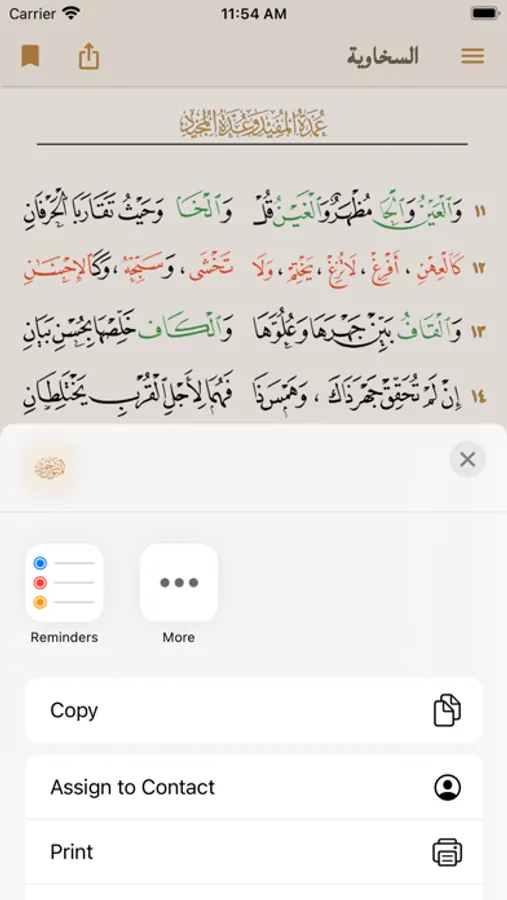 Carrier 11:54 AM
السخاوية
عُمْدَةُ الْمُفِيدِ وَعُدَّةُ الْمُجِيدِ
١١ وَالْعَيْنُ وَالْحَا مُظْهَرٌ وَالْغَيْنُ قُلْ وَالْخَا وَحَيْثُ تَقَارَبَا الْحَرْفَانِ
١٢ كَالْعِهْنِ ، أَفْرِغْ ، لَا تُزِغْ ، يَخْتِمْ ، وَلَا تَخْشَى ، وَسَبِّحْهُ ، وَكَالْإِحْسَانِ
١٣ وَالْقَافُ بَيِّنْ جَهْرَهَا وَعُلُوَّهَا وَالْكَافَ خَلِّصْهَا بِحُسْنِ بَيَانِ
١٤ إِنْ لَمْ تُحَقِّقْ جَهْرَ ذَاكَ ، وَهَمْسَ ذَا فَهُمَا لِأَجْلِ الْقُرْبِ يَخْتَلِطَانِ
Reminders
More
Copy
Assign to Contact
Print